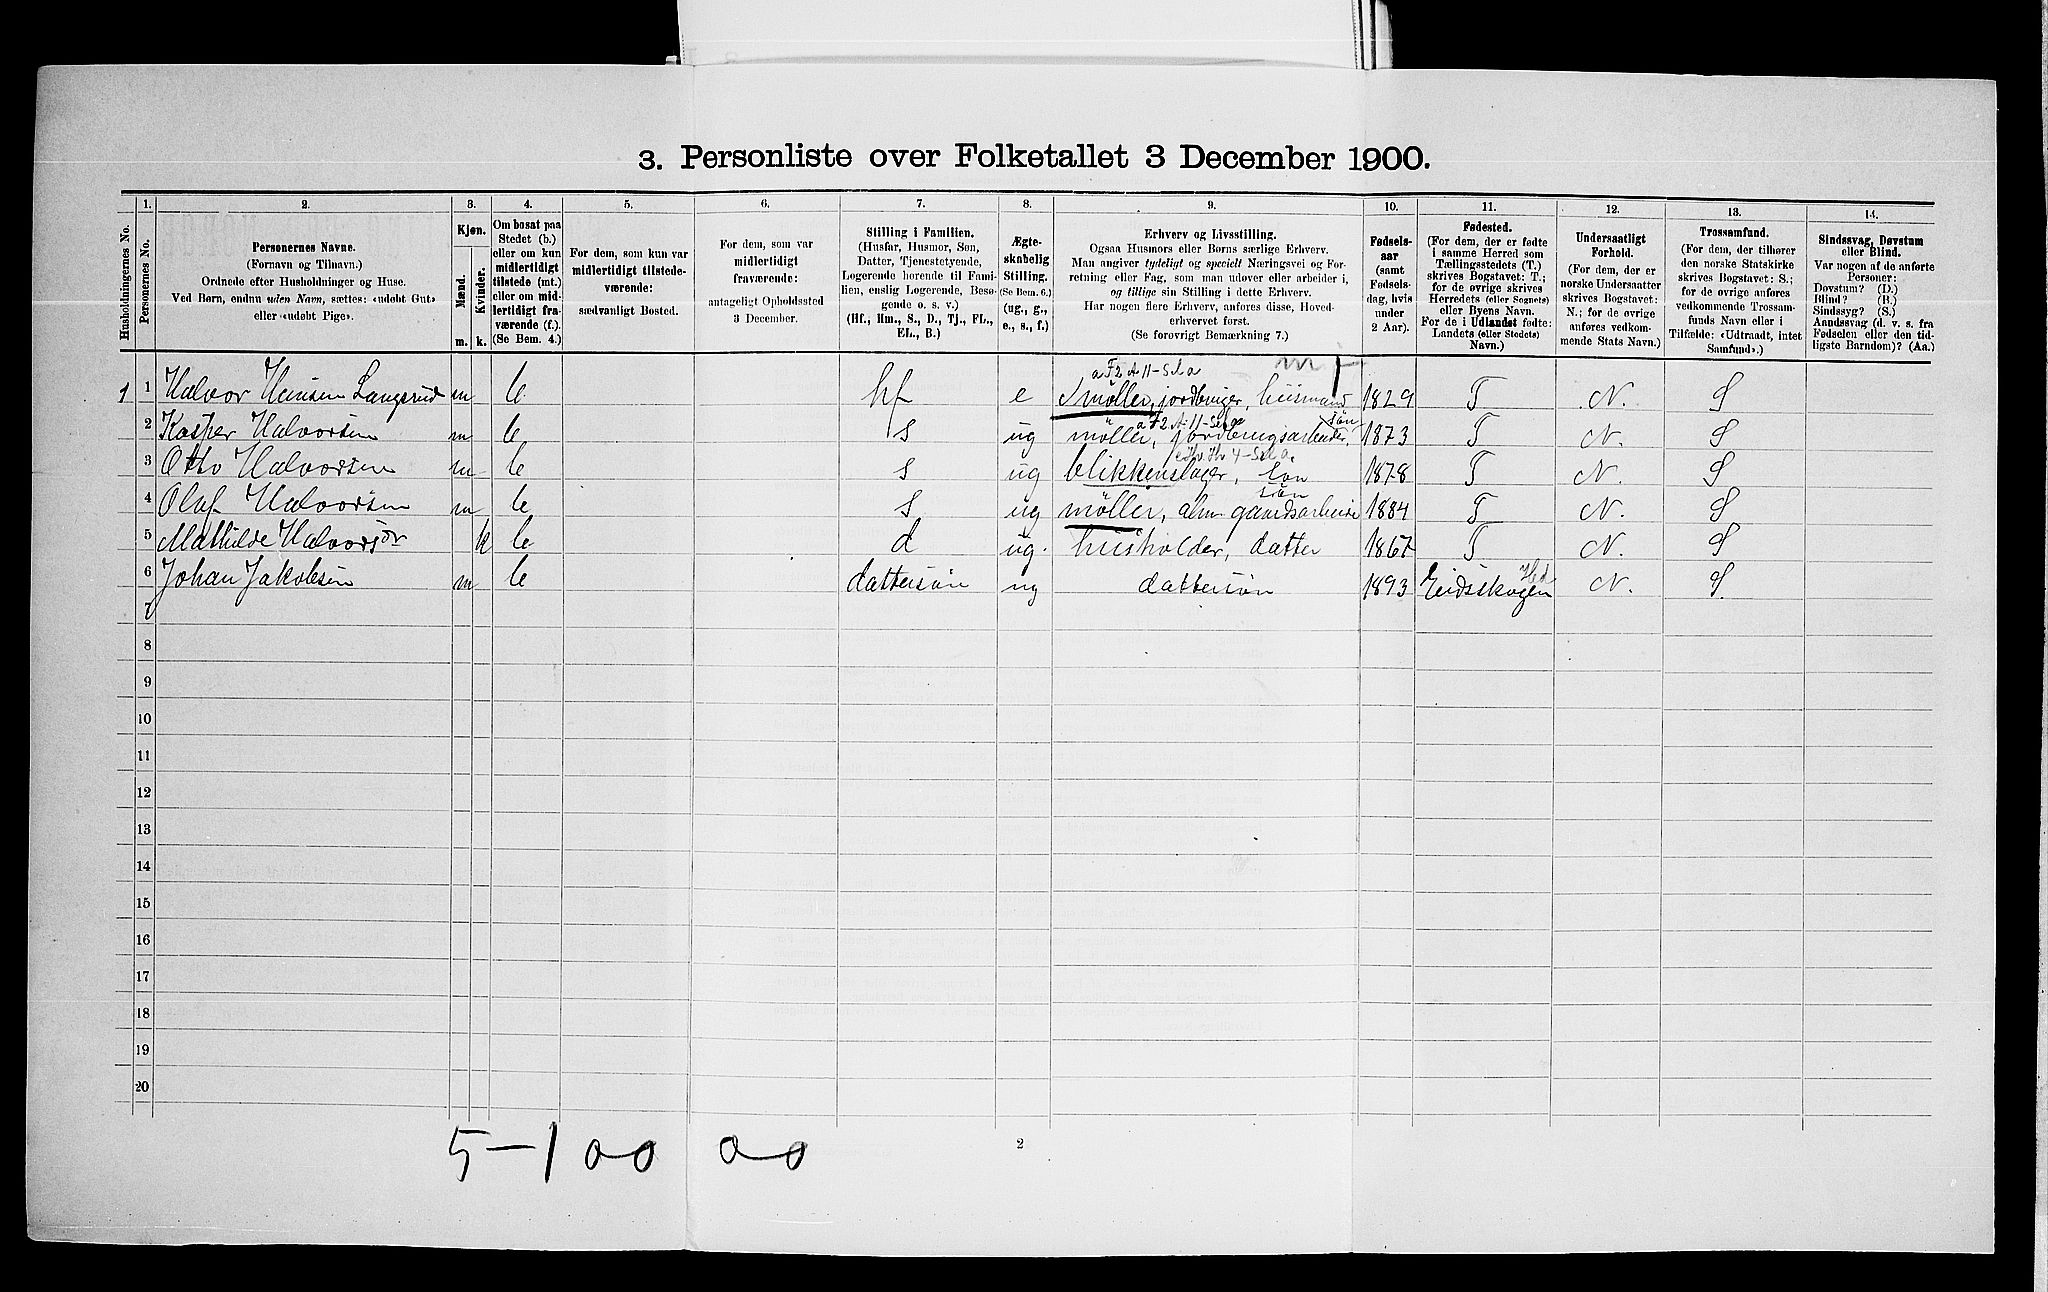 3. Personliste over Folketallet 3 December 1900.
1. 2. 3. 4. 5. 6. 7. 8. 9. 10. 11. 12. 13. 14.
Husholdningernes No.
Personernes No.
Personernes Navne.
(Fornavn og Tilnavn.)
Ordnede efter Husholdninger og Huse.
Ved Børn, endnu uden Navn, sættes: «udøbt Gut»
eller «udøbt Pige».
Kjøn.
Mænd.
Kvinder.
m. k.
Om bosat paa
Stedet (b.)
eller om kun
midlertidigt
tilstede (mt.)
eller om mid-
lertidigt fra-
værende (f.).
(Se Bem. 4.)
For dem, som kun var
midlertidigt tilstede-
værende:
sædvanligt Bosted.
For dem, som var
midlertidigt
fraværende:
antageligt Opholdssted
3 December.
Stilling i Familien.
(Husfar, Husmor, Søn,
Datter, Tjenestetyende,
Logerende hørende til Fami-
lien, enslig Logerende, Besø-
gende o. s. v.)
(Hf., Hm., S., D., Tj., FL.,
EL., B.)
Ægte-
skabelig
Stilling.
(Se Bem. 6.)
(ug., g.,
e., s., f.)
Erhverv og Livsstilling.
Ogsaa Husmors eller Børns særlige Erhverv.
Man angiver tydeligt og specielt Næringsvei og For-
retning eller Fag, som man udøver eller arbeider i,
og tillige sin Stilling i dette Erhverv.
Har nogen flere Erhverv, anføres disse, Hoved-
erhvervet først.
(Se forøvrigt Bemærkning 7.)
Fødsels-
aar
(samt
Fødsels-
dag, hvis
under
2 Aar).
Fødested.
(For dem, der er fødte
i samme Herred som
Tællingsstedets (T.)
skrives Bogstavet: T.;
for de øvrige skrives
Herredets (eller Sognets)
eller Byens Navn.
For de i Udlandet fødte:
Landets (eller Stedets)
Navn.)
Undersaatligt
Forhold.
(For dem, der er
norske Undersaatter
skrives Bogstavet:
N.; for de øvrige
anføres vedkom-
mende Stats Navn.)
Trossamfund.
(For dem, der tilhører
den norske Statskirke
skrives Bogstavet: S.;
for de øvrige anføres
vedkommende Trossam-
funds Navn eller i
Tilfælde: «Udtraadt, intet
Samfund».)
Sindssvag, Døvstum
eller Blind.
Var nogen af de anførte
Personer:
Døvstum? (D.)
Blind? (B.)
Sindssyg? (S.)
Aandssvag (d. v. s. fra
Fødselen eller den tid-
ligste Barndom)? (Aa.)
a F2 A 11-Sel a
1 1 Halvor Hansen Langsrud m b hf e møller, jordbruger, huusmand 1829 T N. S
a F2 A 11-Sel a søn
2 Kasper Halvorsen m b s ug møller, jordbrugsarbeider, 1873 T N. S
3 Otto Halvorsen m b s ug blikkenslager, søn 1878 T N. S
søn
4 Olaf Halvorsen m b s ug møller, alm gaardsarbeide 1884 T N. S
5 Mathilde Halvorsen k b d ug. husholder, datter 1867 T N. S
Hed.
6 Johan Jakobsen m b dattersøn ug dattersøn 1893 Eidsskogen N. S.
7
8
9
10
11
12
13
14
15
16
17
18
19
20
5-1 00 00
2